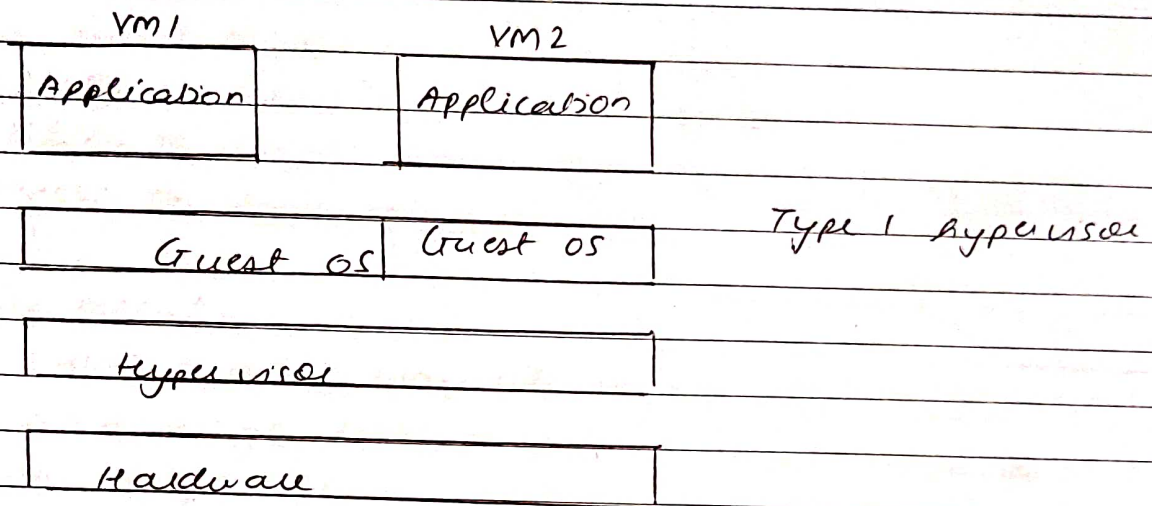 VM1 VM2
Application Application
Guest OS Guest OS
Type 1 hypervisor
Hypervisor
Hardware